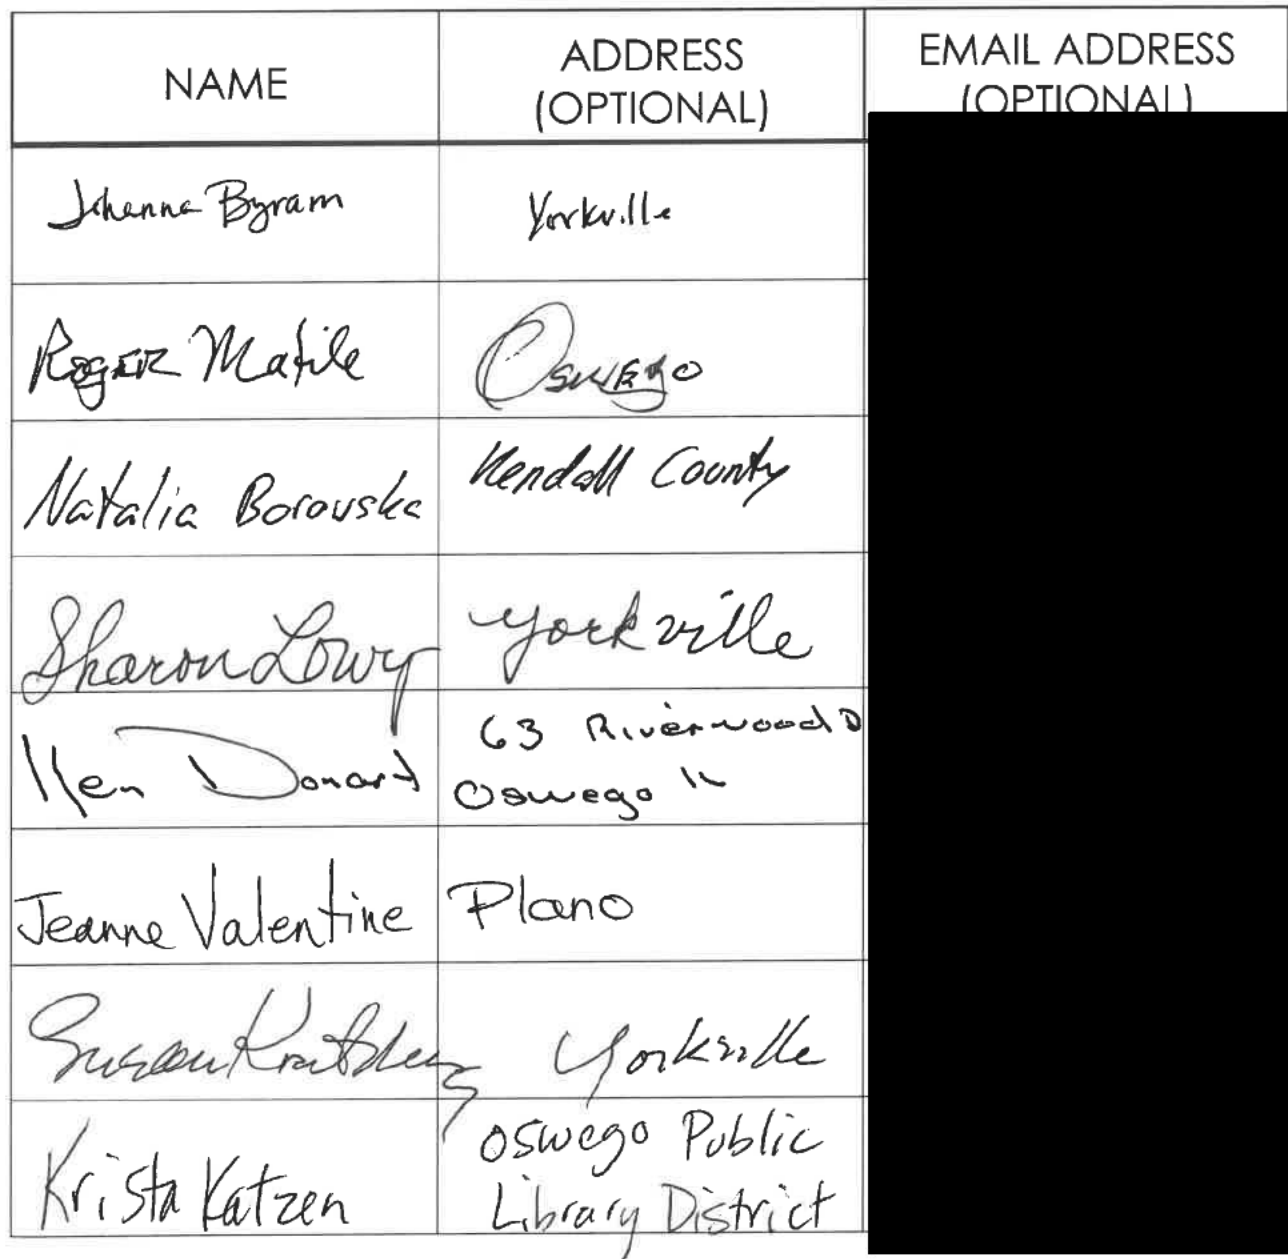 NAME
ADDRESS
(OPTIONAL)
EMAIL ADDRESS
(OPTIONAL)
Johanna Byram
Yorkville
Roger Matile
Oswego
Natalia Borovska
Kendall County
Sharon Lowry
Yorkville
Ken Donart
63 Riverwood D
Oswego IL
Jeanne Valentine
Plano
Susan
Yorkville
Krista Katzen
Oswego Public
Library District